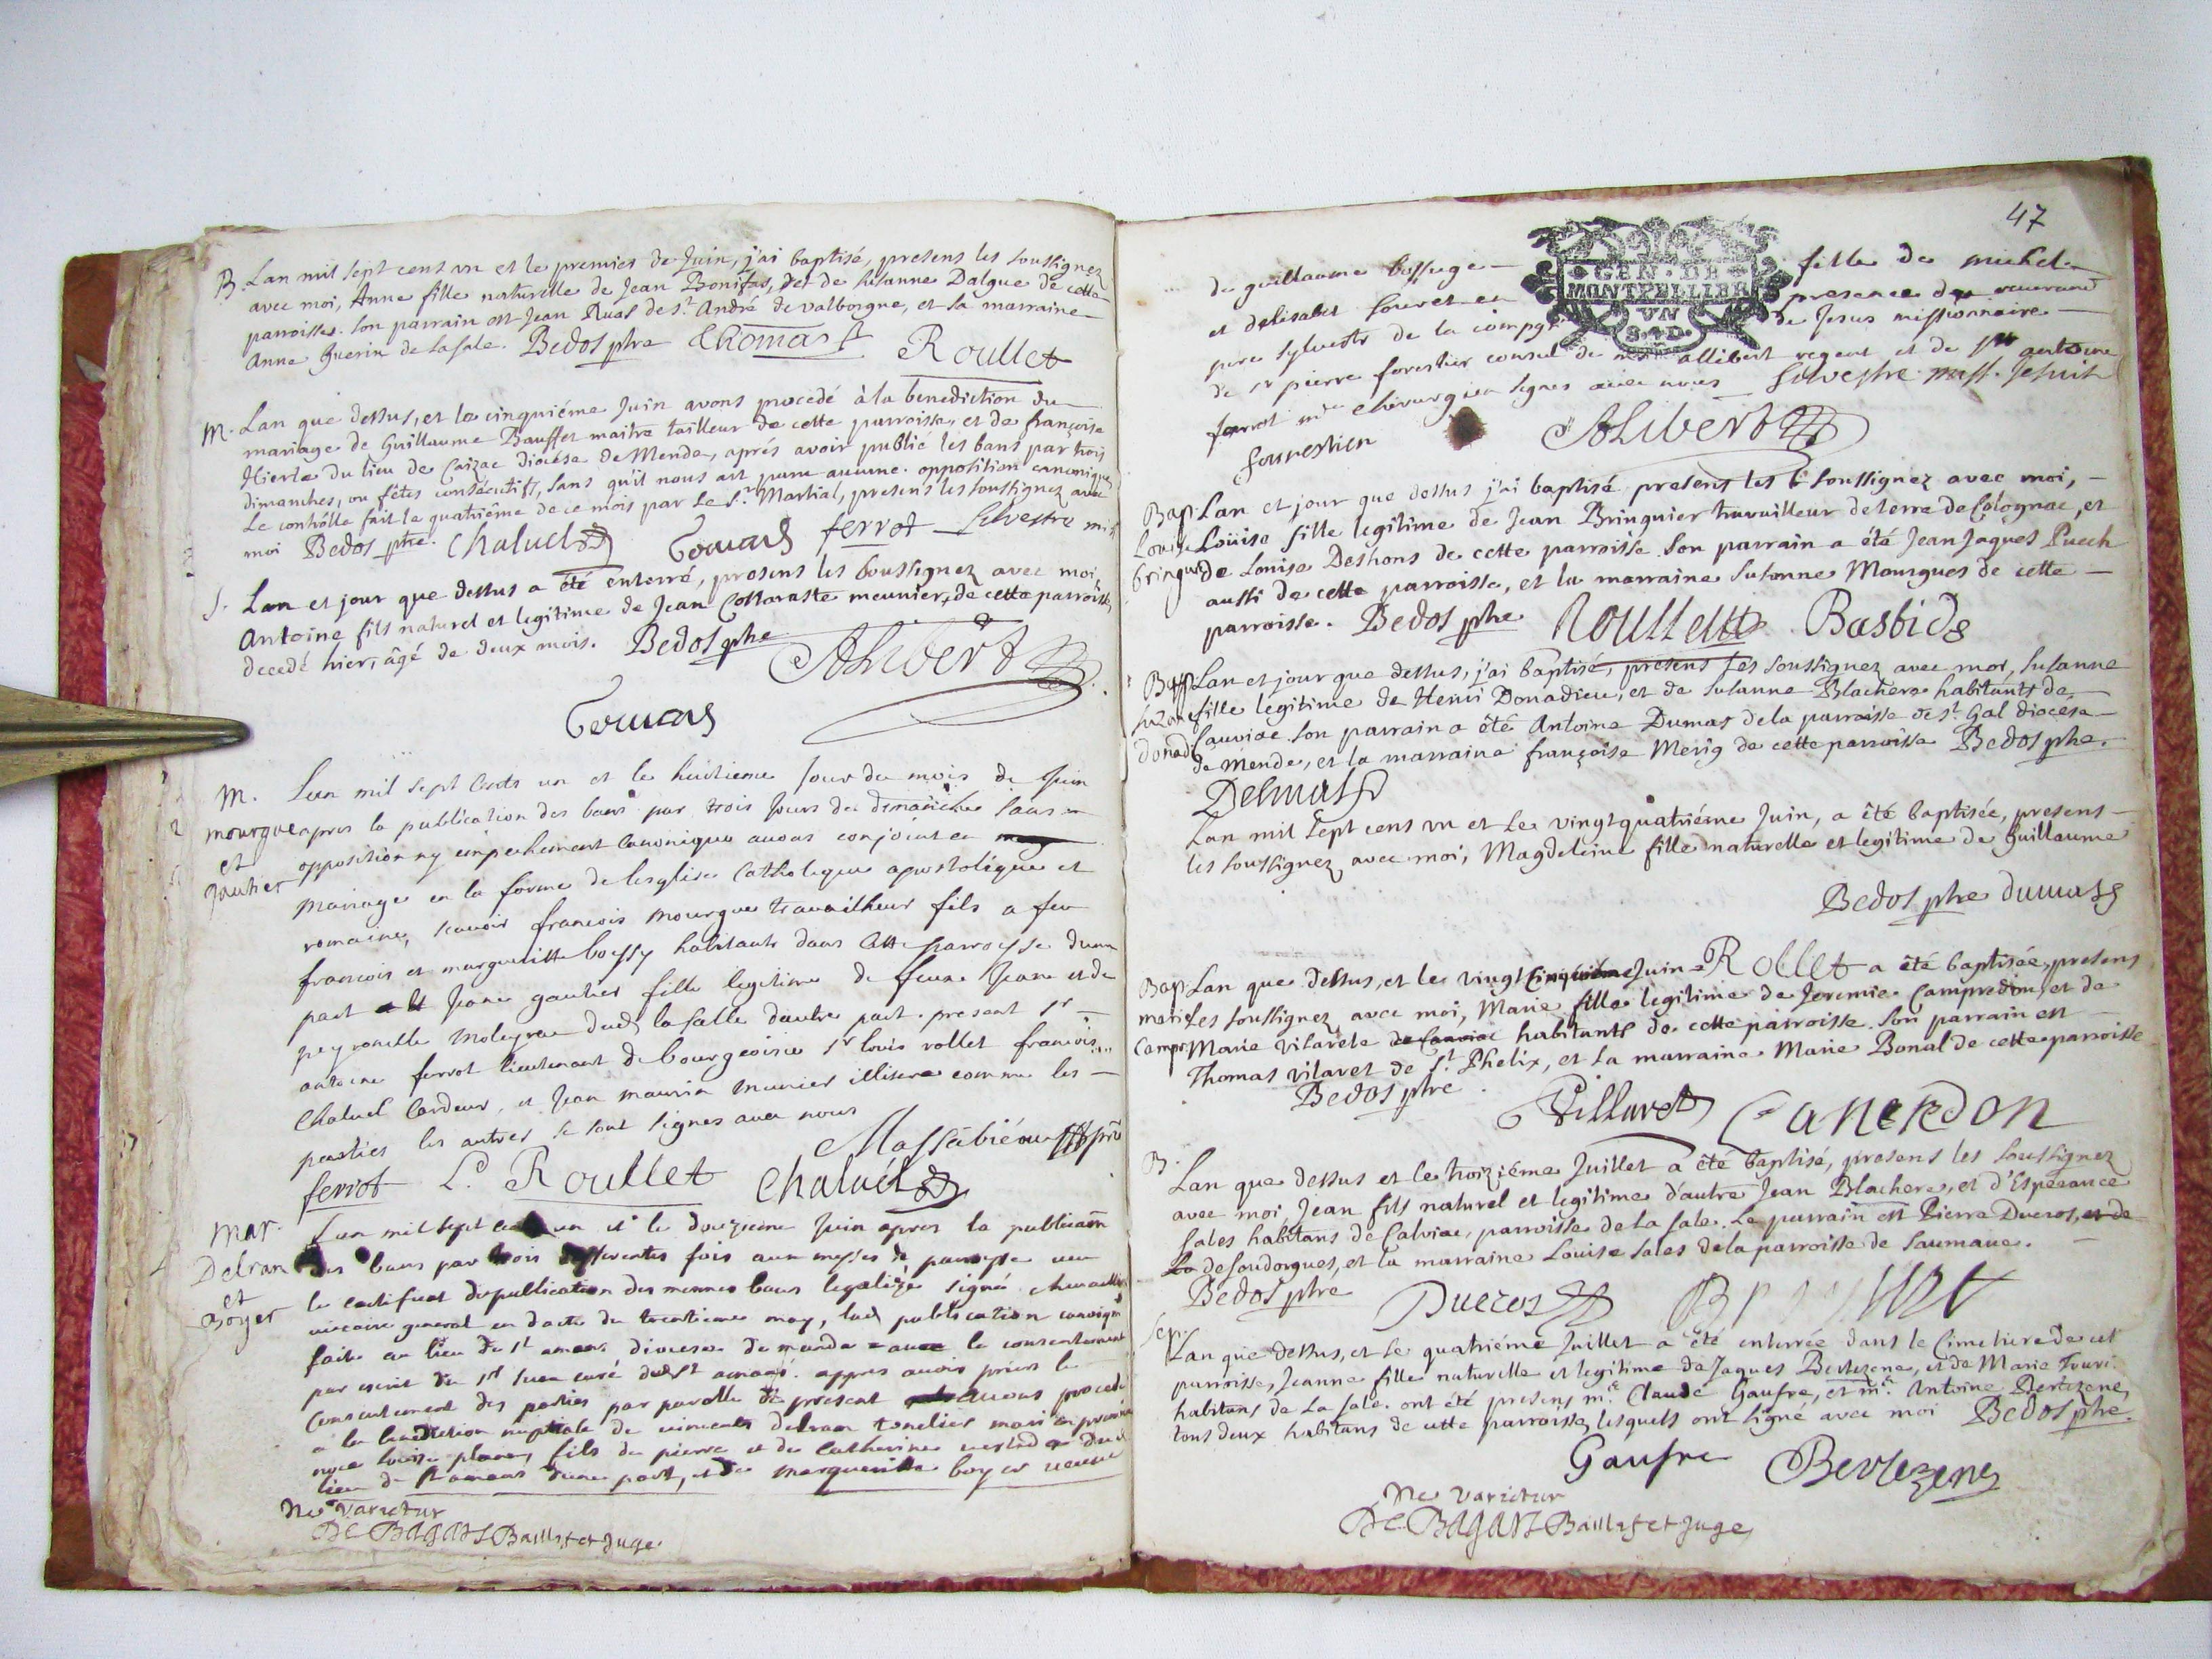 B. Lan mil sept cens un et le premier de Juin, j'ai baptisé, presens les soussignez
avec moi, Anne fille naturelle de Jean Bonifas, et de Susanne Dalgue de cette
parroisse. son parrain est Jean Ruas de st. André de valborgne, et sa marraine
Anne Guerin de Lasale. Bedos ptre Thomas
Roullet
M. Lan que dessus, et le cinquiéme Juin avons procedé à la benediction du
mariage de Guillaume Bauffet maitre tailleur de cette parroisse, et de françoise
Hierle du lieu de Caizac diocése de Mende, aprés avoir publié les bans par trois
dimanches, ou fêtes consécutifs, sans qu'il nous ait paru aucune opposition canonique
Le contrôlle fait le quatriéme de ce mois par Le Sr. Martial, presens les soussignez avec
moi Bedos ptre. Chaluel Gervais ferrot Silvestre
S. Lan et jour que dessus a été enterré, presens les soussignez avec moi
Antoine fils naturel et legitime de Jean Costaraste meunier, de cette parroisse
decedé hier, âgé de deux mois. Bedos ptre Alibert
Gervais
M. Lan mil sept cents un et le huitieme Jour du mois de Juin
mourgue apres la publication des bans par trois Jours de dimanche sans
et opposition ny empechement canonique avons conjoint en
Gautier mariage en la forme de lesglise Catholique apostolique et
romaine, scavoir francois mourgue travailheur fils a feu
francois et margueritte boissy habitants dans cette parroysse dune
part et Jeane gautier fille legitime de feu Jean et de
peyronelle molegre dud lasalle dautre part. present sr
antoine ferrot lieutenant de bourgeoisie sr louis rollet francois
Chaluel Cardeur, et Jean maurin munier illiteré comme les
parties les autres se sont signes avec nous
Massabieau ptre
ferrot L. Roullet Chaluel
Mar. Lan mil sept cens un et le douzieme Juin apres la publication
Delran des bans par trois differentes fois aux messes de parroysse veu
et le certificat de publication des mesmes bans legalizé signé
Boyer vicaire general en datte du trentieme may, lad publication
faite au lieu de st amans diocese de mande avec le consentement
par escrit du sr curé dud st amans. appres avoir prins le
Consentement des parties par parolle de present avons procedé
a la benediction nuptiale de delran tonelier mari en premiere
noce fils de pierre et de Catherine dud
lieu de st amans dune part, et de margueritte boyer veuve
Ne varietur
DE BAGARS Baillif et Juge
47
GEN. DE
MONTPELLIER
VN
S. 4 D.
de guillaume fille de michel
et delisabet en presence du reverend
pere sylvestre de la compge de Jesus missionnaire
de sr pierre forestier consul de allibert regent et de sr antoine
ferrot me chirurgien signes avec nous Silvestre miss. Jesuite
fourestier Alibert
Bap. Lan et jour que dessus j'ai baptisé presens les soussignez avec moi,
Louise Loüise fille legitime de Jean Bringuier travailleur de terre de Cologna, et
bringuier de Louise Deshons de cette parroisse. Son parrain a été Jean Jaques Puech
aussi de cette parroisse, et la marraine Susanne Mourgues de cette
parroisse. Bedos ptre Roullet Bastide
Bap. Lan et jour que dessus, j'ai baptisé, presens les soussignez avec moi, Susanne
Suzane fille legitime de Henri Donadieu, et de Susanne Blachere habitants de
donad. Cauviac. son parrain a été Antoine Dumas de la parroisse de st. Gal diocese
de Mende, et la marraine françoise Merig de cette parroisse Bedos ptre.
Delmas
Lan mil sept cens un et le vingt quatriéme Juin, a été baptisée, presens
les soussignez avec moi, Magdeleine fille naturelle et legitime de Guillaume
Bedos ptre Dumas
Bap. Lan que dessus, et le vingt cinquiéme Juin Rollet a été baptisée, presens
marie les soussignez avec moi, Marie fille legitime de Jeremie Campredon, et de
Camp. Marie vilarete habitants de cette parroisse. Son parrain est
Thomas vilaret de st. Phelix, et la marraine Marie Bonal de cette parroisse
Bedos ptre. Villaret Canpredon
B. Lan que dessus et le troiziéme Juillet a été baptisé, presens les soussignez
avec moi Jean fils naturel et legitime d'autre Jean Blachere, et d'Esperance
Sales habitans de Calviac, parroisse de La Sale. Le parrain est Pierre Ducros, et de
La de Soudorgues, et la marraine Louise Sales de la parroisse de Saumane.
Bedos ptre Ducros
Sep. Lan que dessus, et le quatriéme Juillet a été enterrée dans le Cimetiere de cet
parroisse, Jeanne fille naturelle et legitime de Jaques Bertezene, et de Marie
habitans de La Sale. ont été presens, me. Claude Gaufre, et me. Antoine Bertezene,
tous deux habitans de cette parroisse, lesquels ont signé avec moi Bedos ptre.
Gaufre Bertezene
Ne varietur
DE BAGARS Baillif et Juge